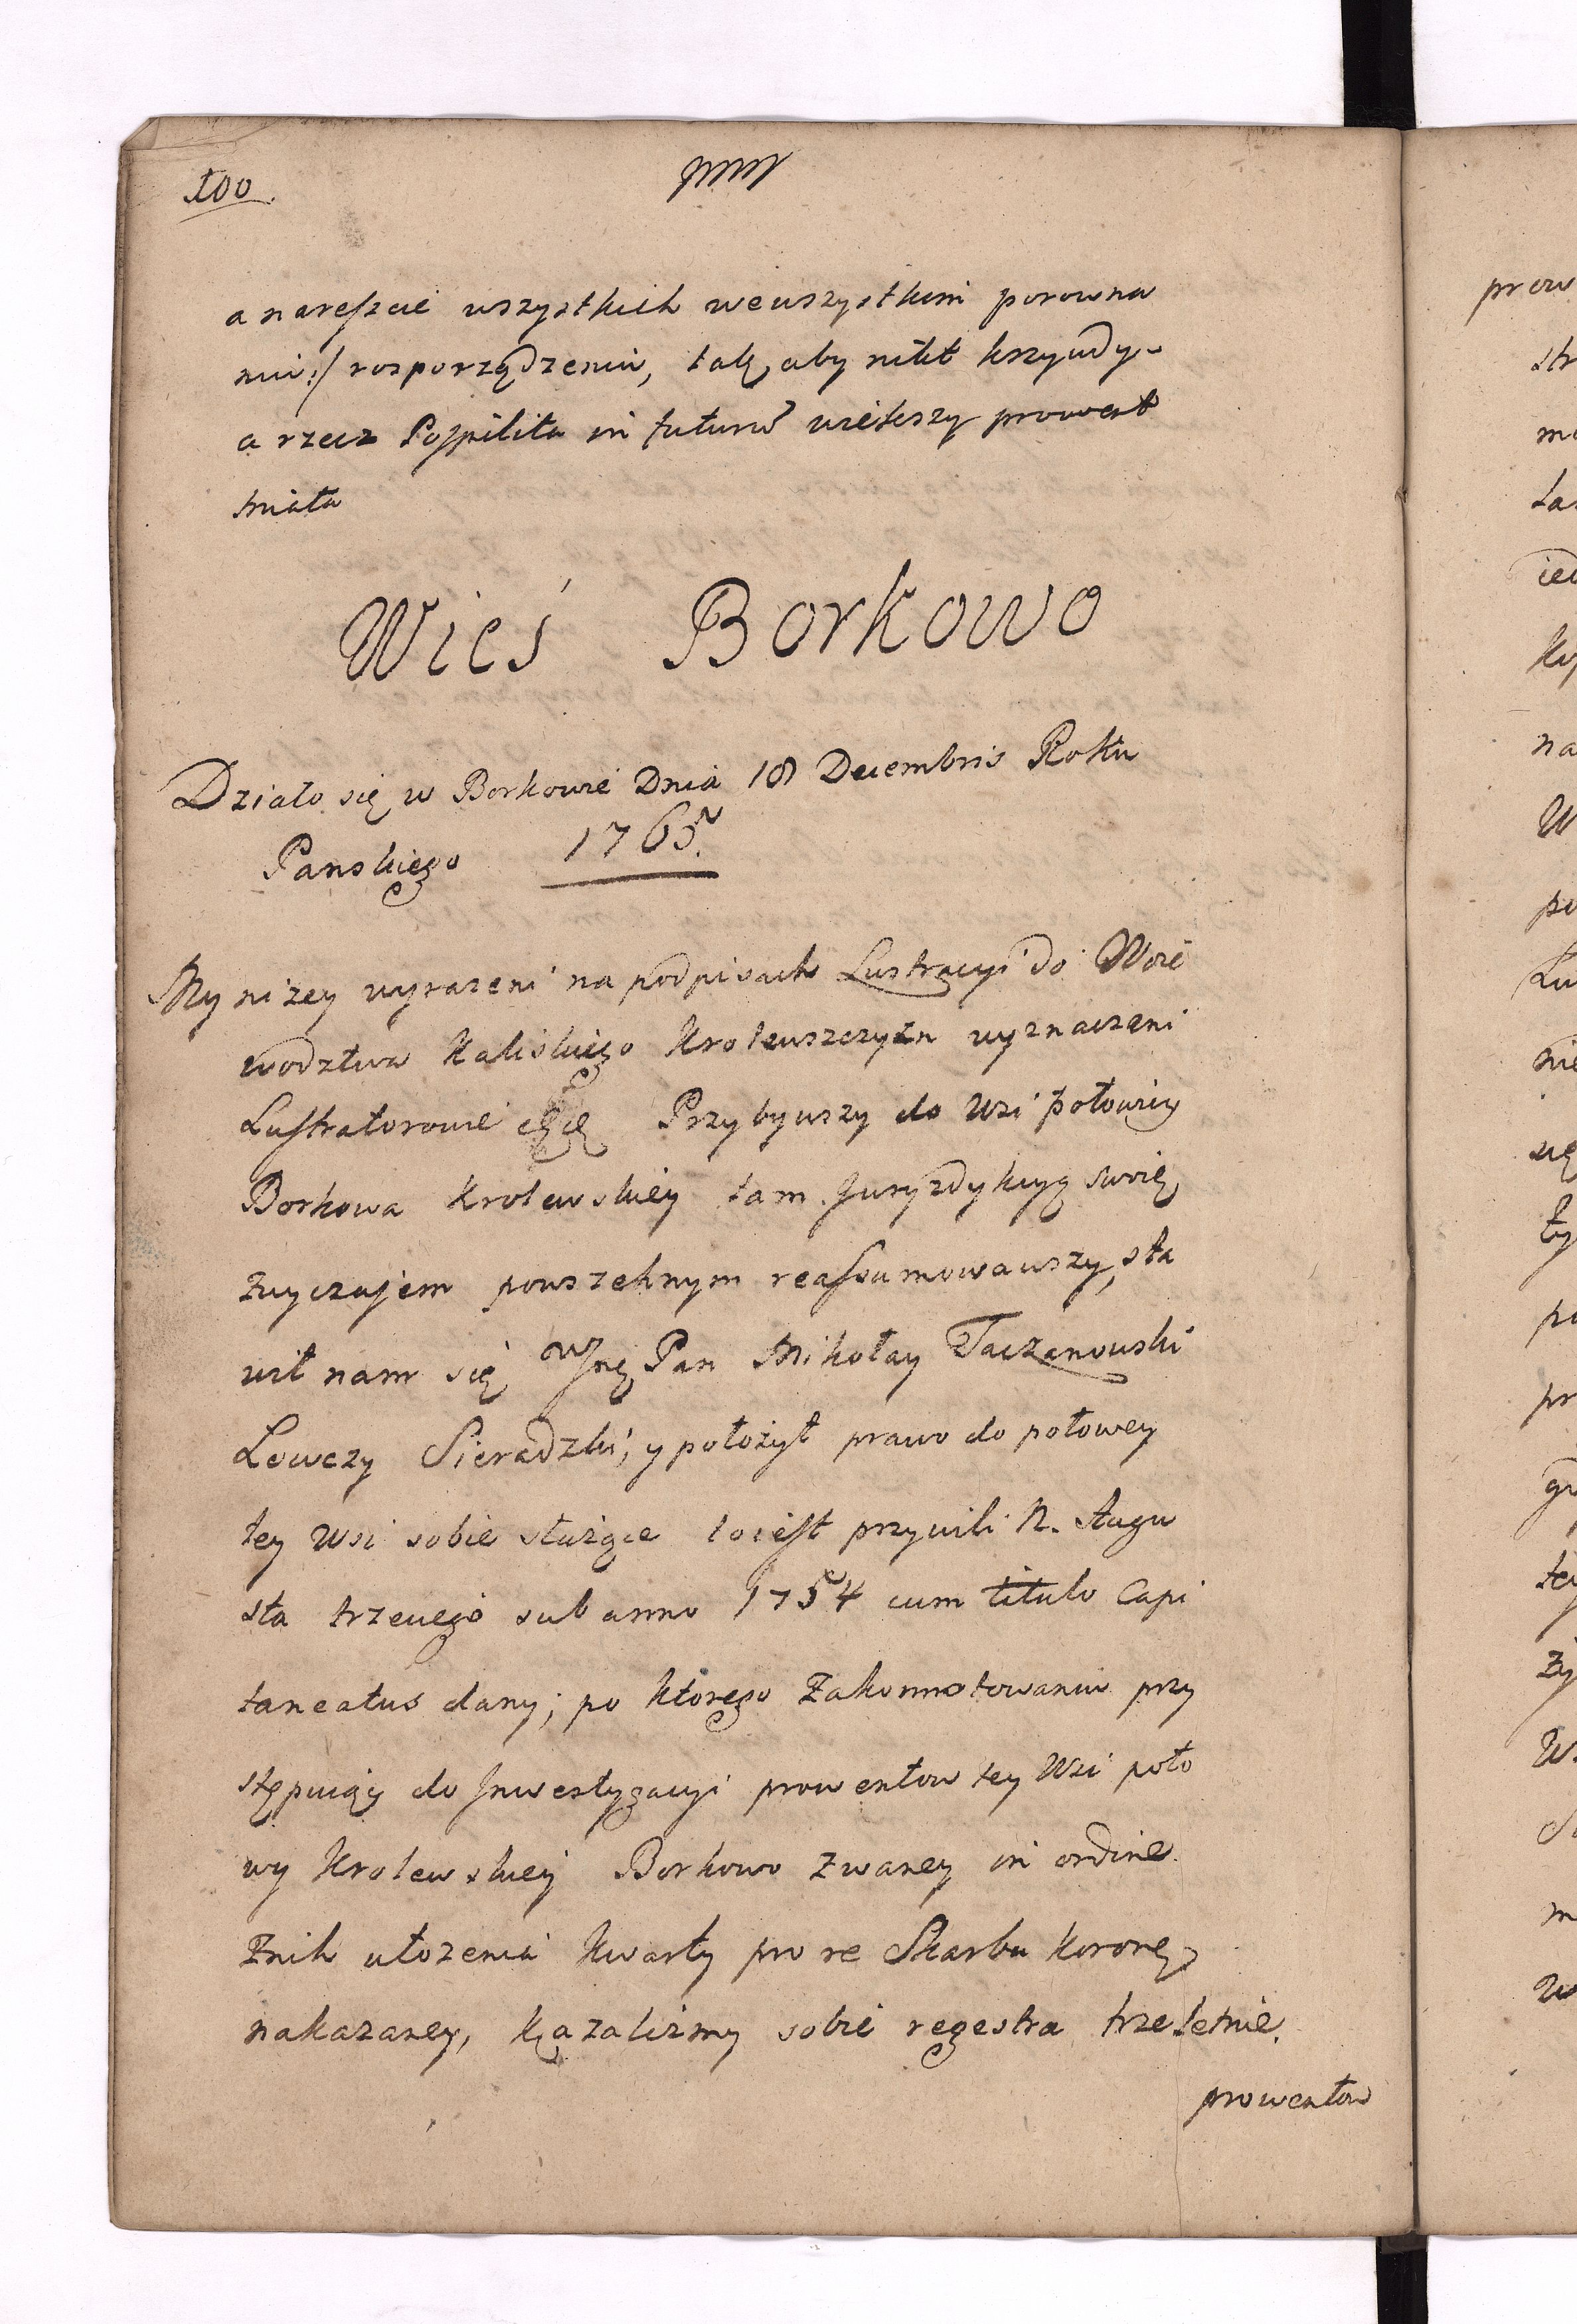 100.
anareszcie wszystkich wewszystkim porowna
niu:/ rosporządzeniu, tak, aby nikt krzywdy
a rzecz Pospilita in futurū wiekszy prowent
miała
Wieś Borkowo
Działo się w Borkowie Dnia 18 Decembris Roku
Panskiego 1765.
My niżey wyrazeni na podpisach Lustracyi do Woie
wodztwa Kaliskiego Krolewszczyzn wyznaczeni
Lustratorowie Przybywszy do Wsi połowicy
Borkowa Krolewskiey tam Juryzdykcyą swoię
zwyczajem powszehnym reassumowawszy, sta
wił nam się Pan Mikołay Taczanowski
Łowczy Sieradzki, y położył prawo do połowey
tey Wsi sobie służące to iest przywili N. Augu
sta trzeciego sub anno 1754 cum titulo Capi
taneatus dany; po ktorego Zakonnotowaniu przy
stępuiąc do Jnwestygacyi prowentow tey Wsi poło
wy Krolewskiey Borkowo Zwaney in ordine
Znich ułozenia Kwarty pro re Skarbu Korong
nakazaney, kazalismy sobie regestra trzeletnie
prowentow
prow